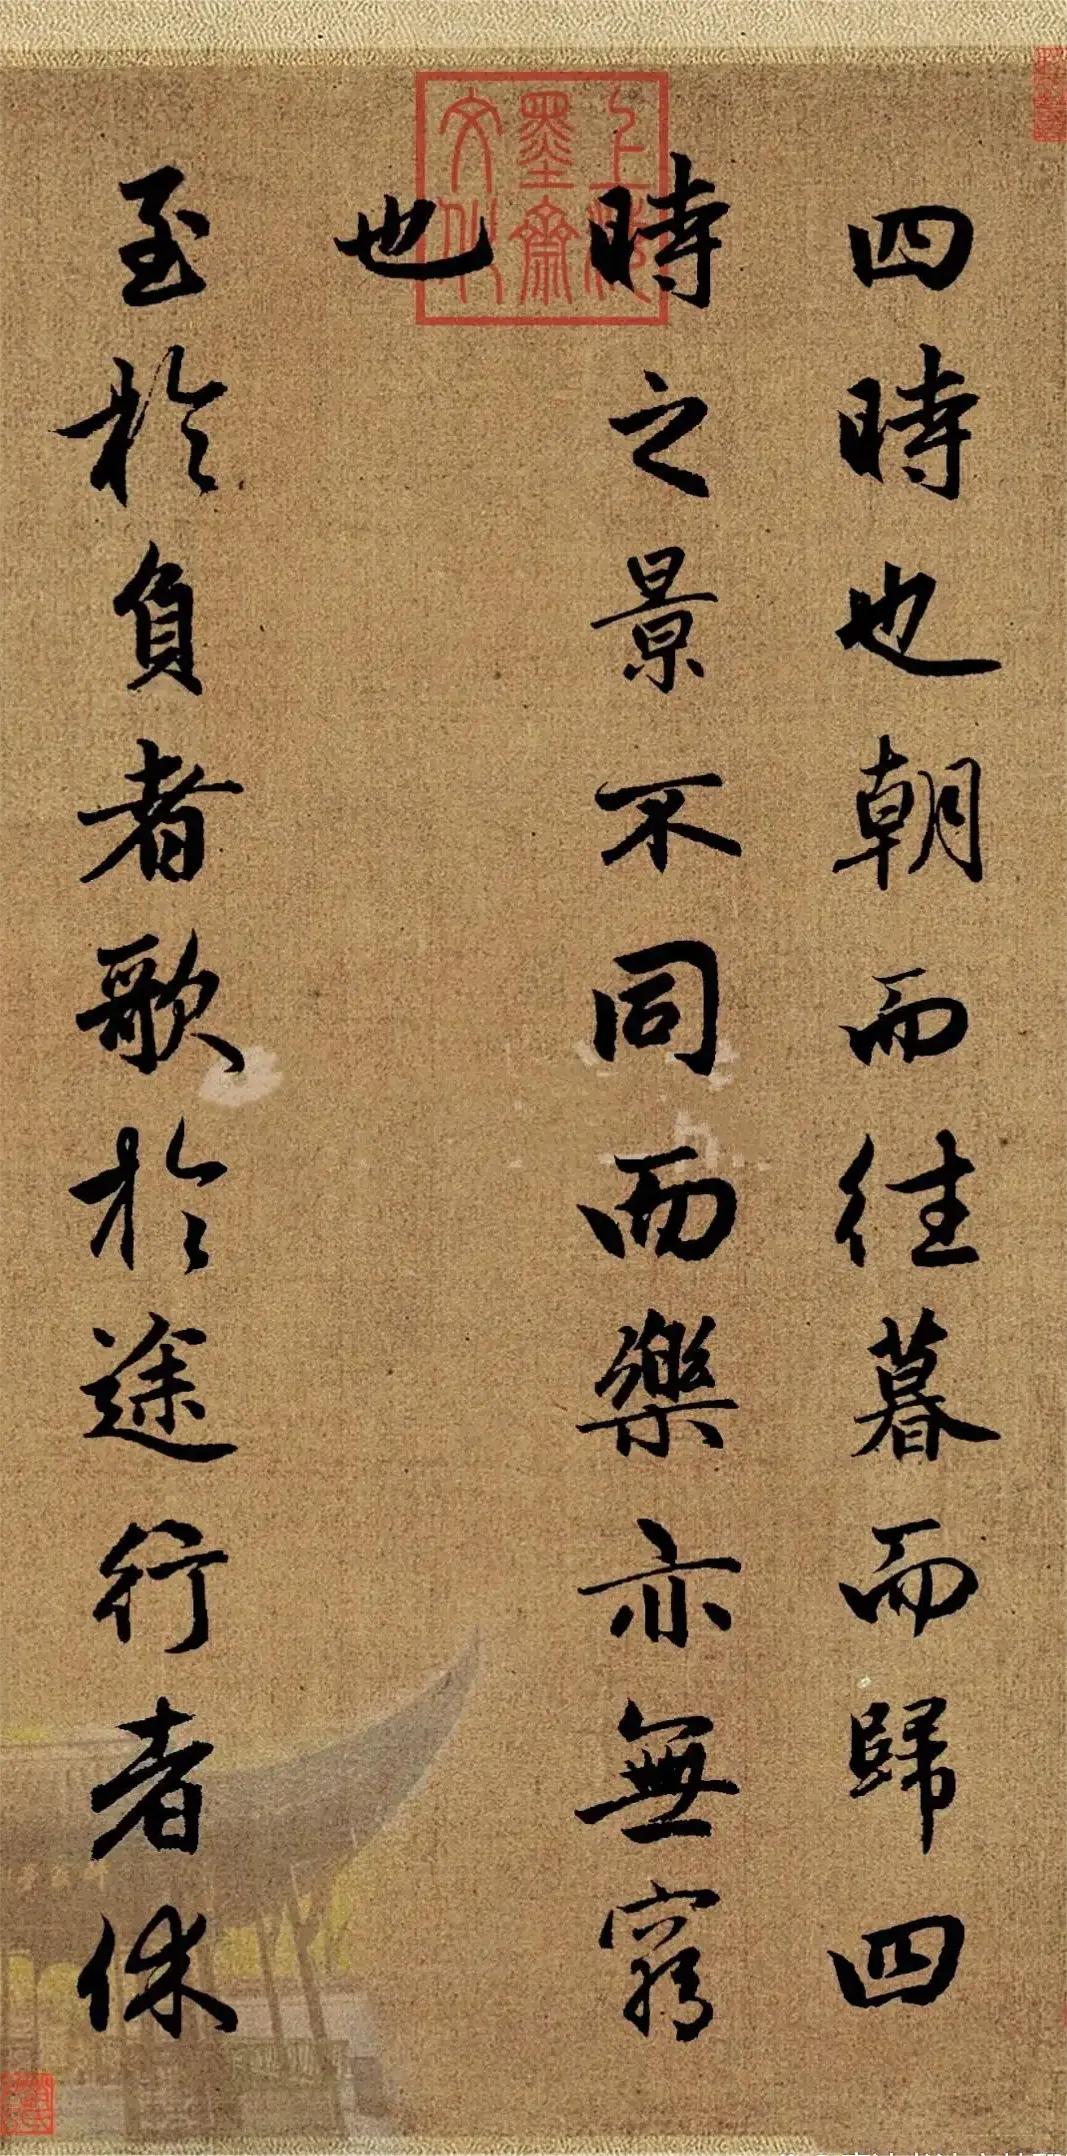 四時也朝而往暮而歸四
時之景不同而樂亦無窮
也
至於負者歌於途行者休
上海
墨齋
文化